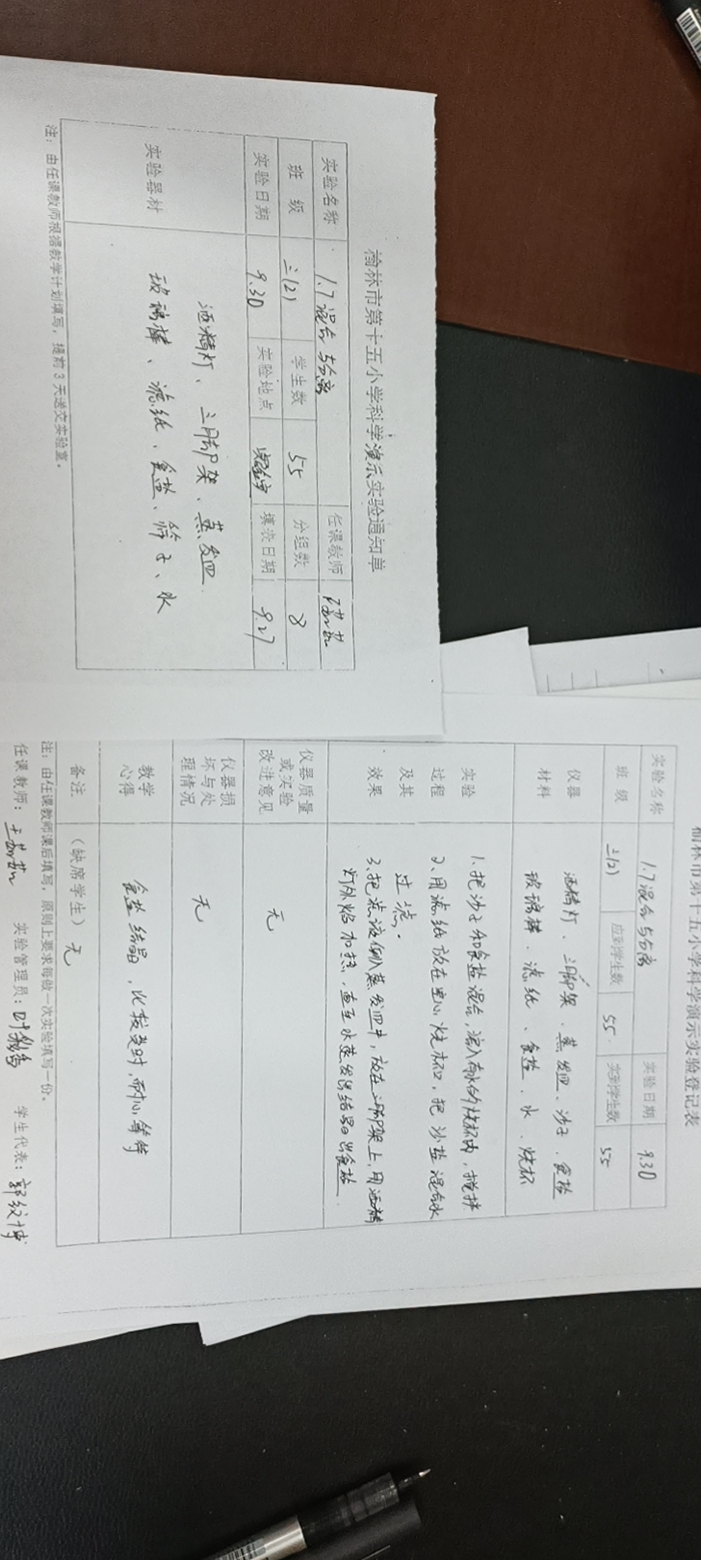 榆林市第十五小学科学演示实验通知单
实验名称 1.7混合与分离 任课教师
班 级 三(2) 学生数 55 分组数 8
实验日期 9.30 实验地点 实验室 填表日期 9.27
实验器材
酒精灯、三脚架、蒸发皿、
玻璃棒、滤纸、食盐、筛子、水
注：由任课教师根据教学计划填写，提前3天送交实验室。
榆林市第十五小学科学演示实验登记表
实验名称 1.7混合与分离 实验日期 9.30
班 级 三(2) 应到学生数 55 实到学生数 55
仪器
材料
酒精灯、三脚架、蒸发皿、沙子、食盐
玻璃棒、滤纸、食盐、水、烧杯
实验
过程
及其
效果
1、把沙子和食盐混合，溶入有水的烧杯内，搅拌
2、用滤纸放在空心烧杯口，把沙盐混合水
过滤。
3、把滤液倒入蒸发皿中，放在三脚架上，用酒精
灯外焰加热，直至水蒸发出结晶出食盐
仪器质量
或实验
改进意见
无
仪器损
坏与处
理情况
无
教学
心得
食盐结晶，比较费时，耐心等待
备注 （缺席学生）无
注：由任课教师课后填写，原则上要求每做一次实验填写一份。
任课教师： 实验管理员： 学生代表：